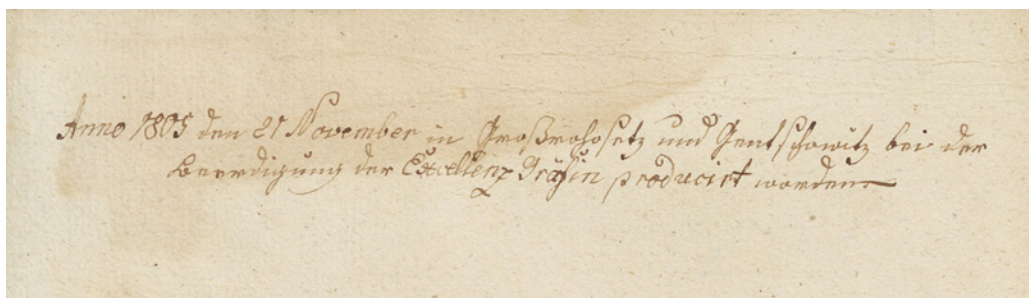 Anno 1805 den 21 November in Großrohosetz und Jentschowitz bei der
Beerdigung der Excellenz Gräfin producirt worden